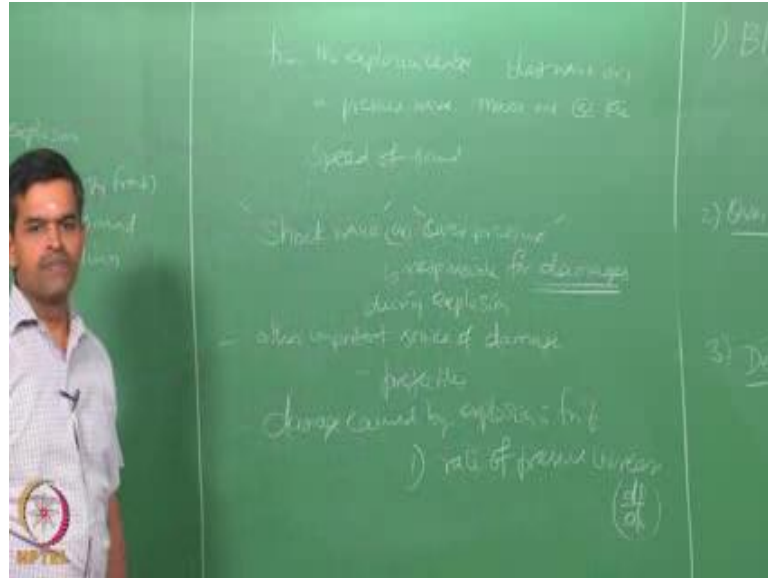 explosion
front)
sound
from the explosion center blast wave or
a pressure wave moves out @ the
speed of sound
"Shock wave" (or) "over pressure"
responsible for damages
during explosion
- other important source of damage
- projectiles
damage caused by explosion = fn of
1) rate of pressure increase
1) Bl
2) Over
3) De
NPTEL